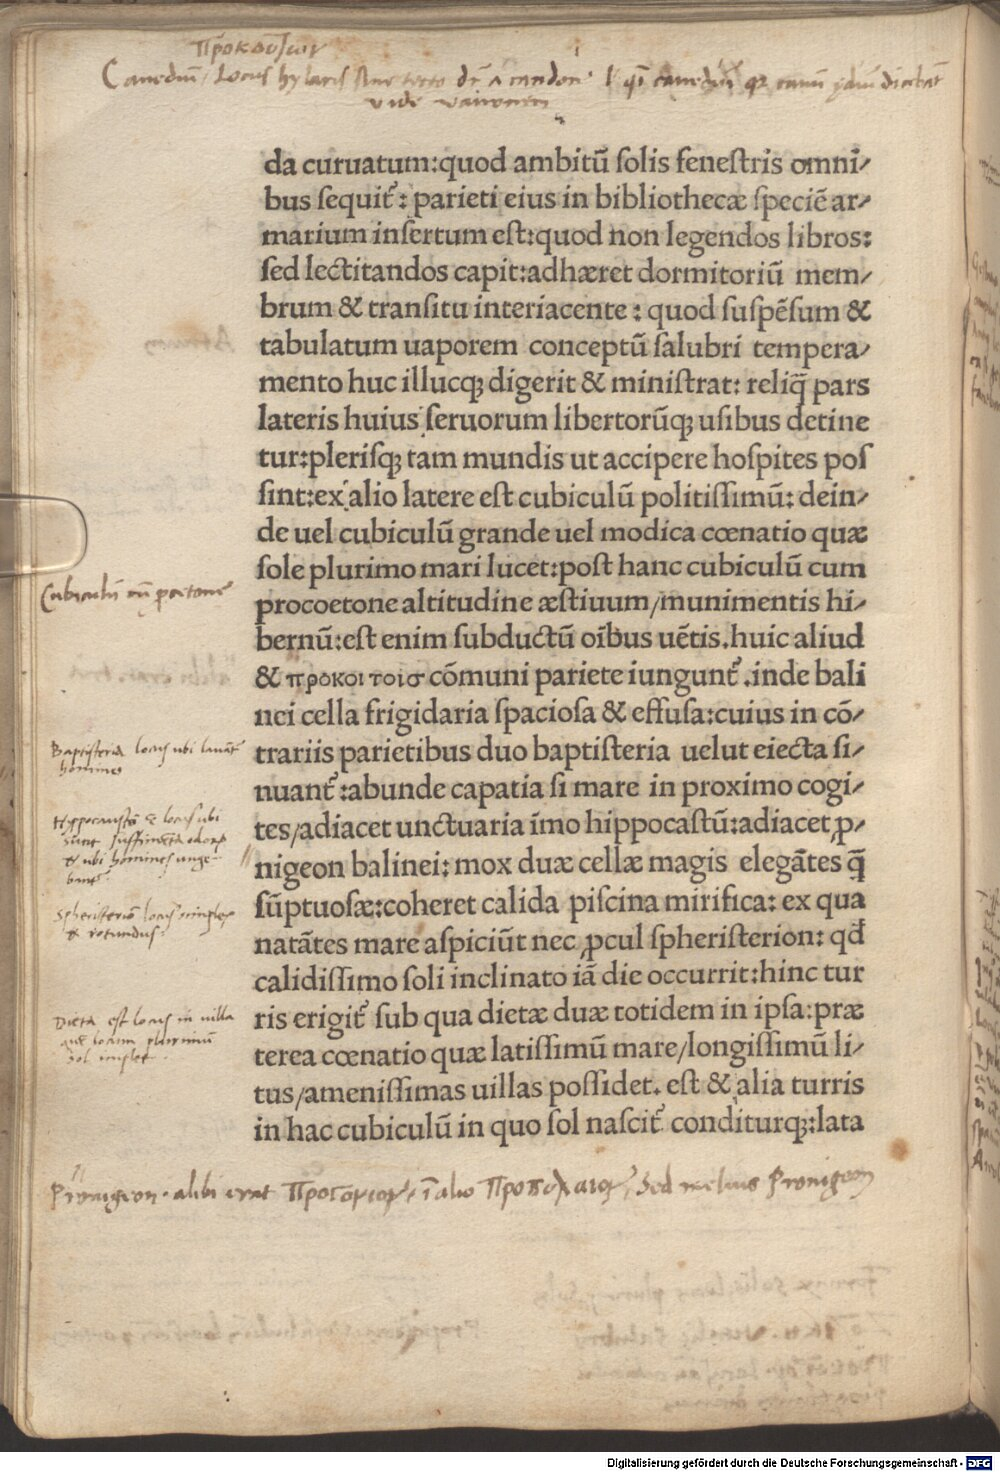 da curuatum:quod ambitū ſolis feneſtris omni/
bus ſequit᷑: parieti eius in bibliothecæ ſpeciē ar/
marium inſertum eſt:quod non legendos libros:
ſed lectitandos capit:adhæret dormitoriū mem/
brum & tranſitu interiacente: quod ſuſpēſum &
tabulatum uaporem conceptū ſalubri tempera/
mento huc illucqꝫ digerit & miniſtrat: reliq̄ pars
lateris huius ſeruorum libertorūqꝫ uſibus detine
tur:pleriſqꝫ tam mundis ut accipere hoſpites poſ
ſint:ex alio latere eſt cubiculū politiſſimū: dein/
de uel cubiculū grande uel modica cœnatio quæ
ſole plurimo mari lucet:poſt hanc cubiculū cum
procoetone altitudine æſtiuum/munimentis hi/
bernū:eſt enim ſubductū oībus uētis.huic aliud
& προκοι τοισ cōmuni pariete iungunt᷑ .inde bali
nei cella frigidaria ſpacioſa & effuſa:cuius in cō/
trariis parietibus duo baptiſteria uelut eiecta ſi/
nuant᷑ :abunde capatia ſi mare in proximo cogi/
tes/adiacet unctuaria īmo hippocaſtū:adiacet ꝓ/
nigeon balinei: mox duæ cellæ magis elegātes q̄
ſūptuoſæ:coheret calida piſcina mirifica: ex qua
natātes mare aſpiciūt nec ꝓcul ſpheriſterion: qđ
calidiſſimo ſoli inclinato iā die occurrit:hinc tur
ris erigit᷑ ſub qua dietæ duæ totidem in ipſa:præ
terea cœnatio quæ latiſſimū mare/longiſſimū li/
tus/ameniſſimas uillas poſſidet. eſt & alia turris
in hac cubiculū in quo ſol naſcit᷑ conditurqꝫ:lata
Baptiſteria locus ubi
homines
& rotundus
Dieta eſt locus in uilla
Pronigeon . alibi erat
Sed melius Pronigeon
Digitalisierung gefördert durch die Deutsche Forschungsgemeinschaft - DFG